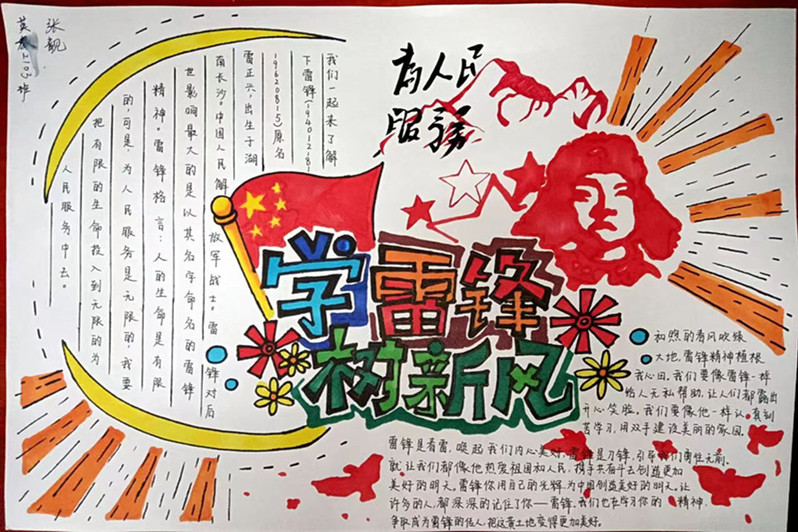 张靓
英教2103班
为人民
服务
我们一起来了解
下雷锋(1940.12.18-
19620815)原名
雷正兴,出生于湖
南长沙。中国人民解放军战士。雷锋对后
世影响最大的是以其名字命名的雷锋
精神。雷锋格言:人的生命是有限
的,可是,为人民服务是无限的,我要
把有限的生命投入到无限的为
人民服务中去。
学雷锋
树新风
和煦的春风吹绿
大地,雷锋精神植根
我心田。我们要像雷锋一样
给人无私帮助,让人们都露出
开心笑脸。我们要像他一样认真刻
苦学习,用双手建设美丽的家园。
雷锋是春雷,唤起我们内心美好,雷锋是刀锋,引导我们勇往无前。
就让我们都像他热爱祖国和人民,携手共奋斗去创造更加
美好的明天。雷锋你用自己的光辉为中国创造美好的明天。让
许多的人,都深深的记住了你——雷锋,我们也在学习你的精神,
争取成为雷锋的传人,把这黄土地变得更加美好。